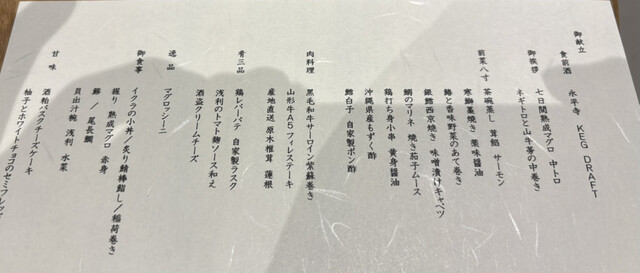 御献立
食前酒 永平寺 KEG DRAFT
御挨拶 七日間熟成マグロ 中トロ
ネギトロと山牛蒡の中巻き
前菜八寸 茶碗蒸し 茸餡 サーモン
寒鰤藁焼き 薬味醤油
鰆と香味野菜のあて巻き
銀鱈西京焼き 味噌漬けキャベツ
鯛のマリネ 焼き茄子ムース
鶏打ち身小串 黄身醤油
沖縄県産もずく酢
鱈白子 自家製ポン酢
肉料理 黒毛和牛サーロイン紫蘇巻き
山形牛A5フィレステーキ
産地直送 原木椎茸 蓮根
肴三品 鶏レバーパテ 自家製ラスク
浅利のトマト麹ソース和え
酒盗クリームチーズ
逸品 マグロッシーニ
御食事 イクラの小丼/炙り鯖棒鮨し/稲荷巻き
握り 熟成マグロ 赤身
鰤 / 尾長鯛
貝出汁椀 浅利 水菜
甘味 酒粕バスクチーズケーキ
柚子とホワイトチョコのセミフレッド